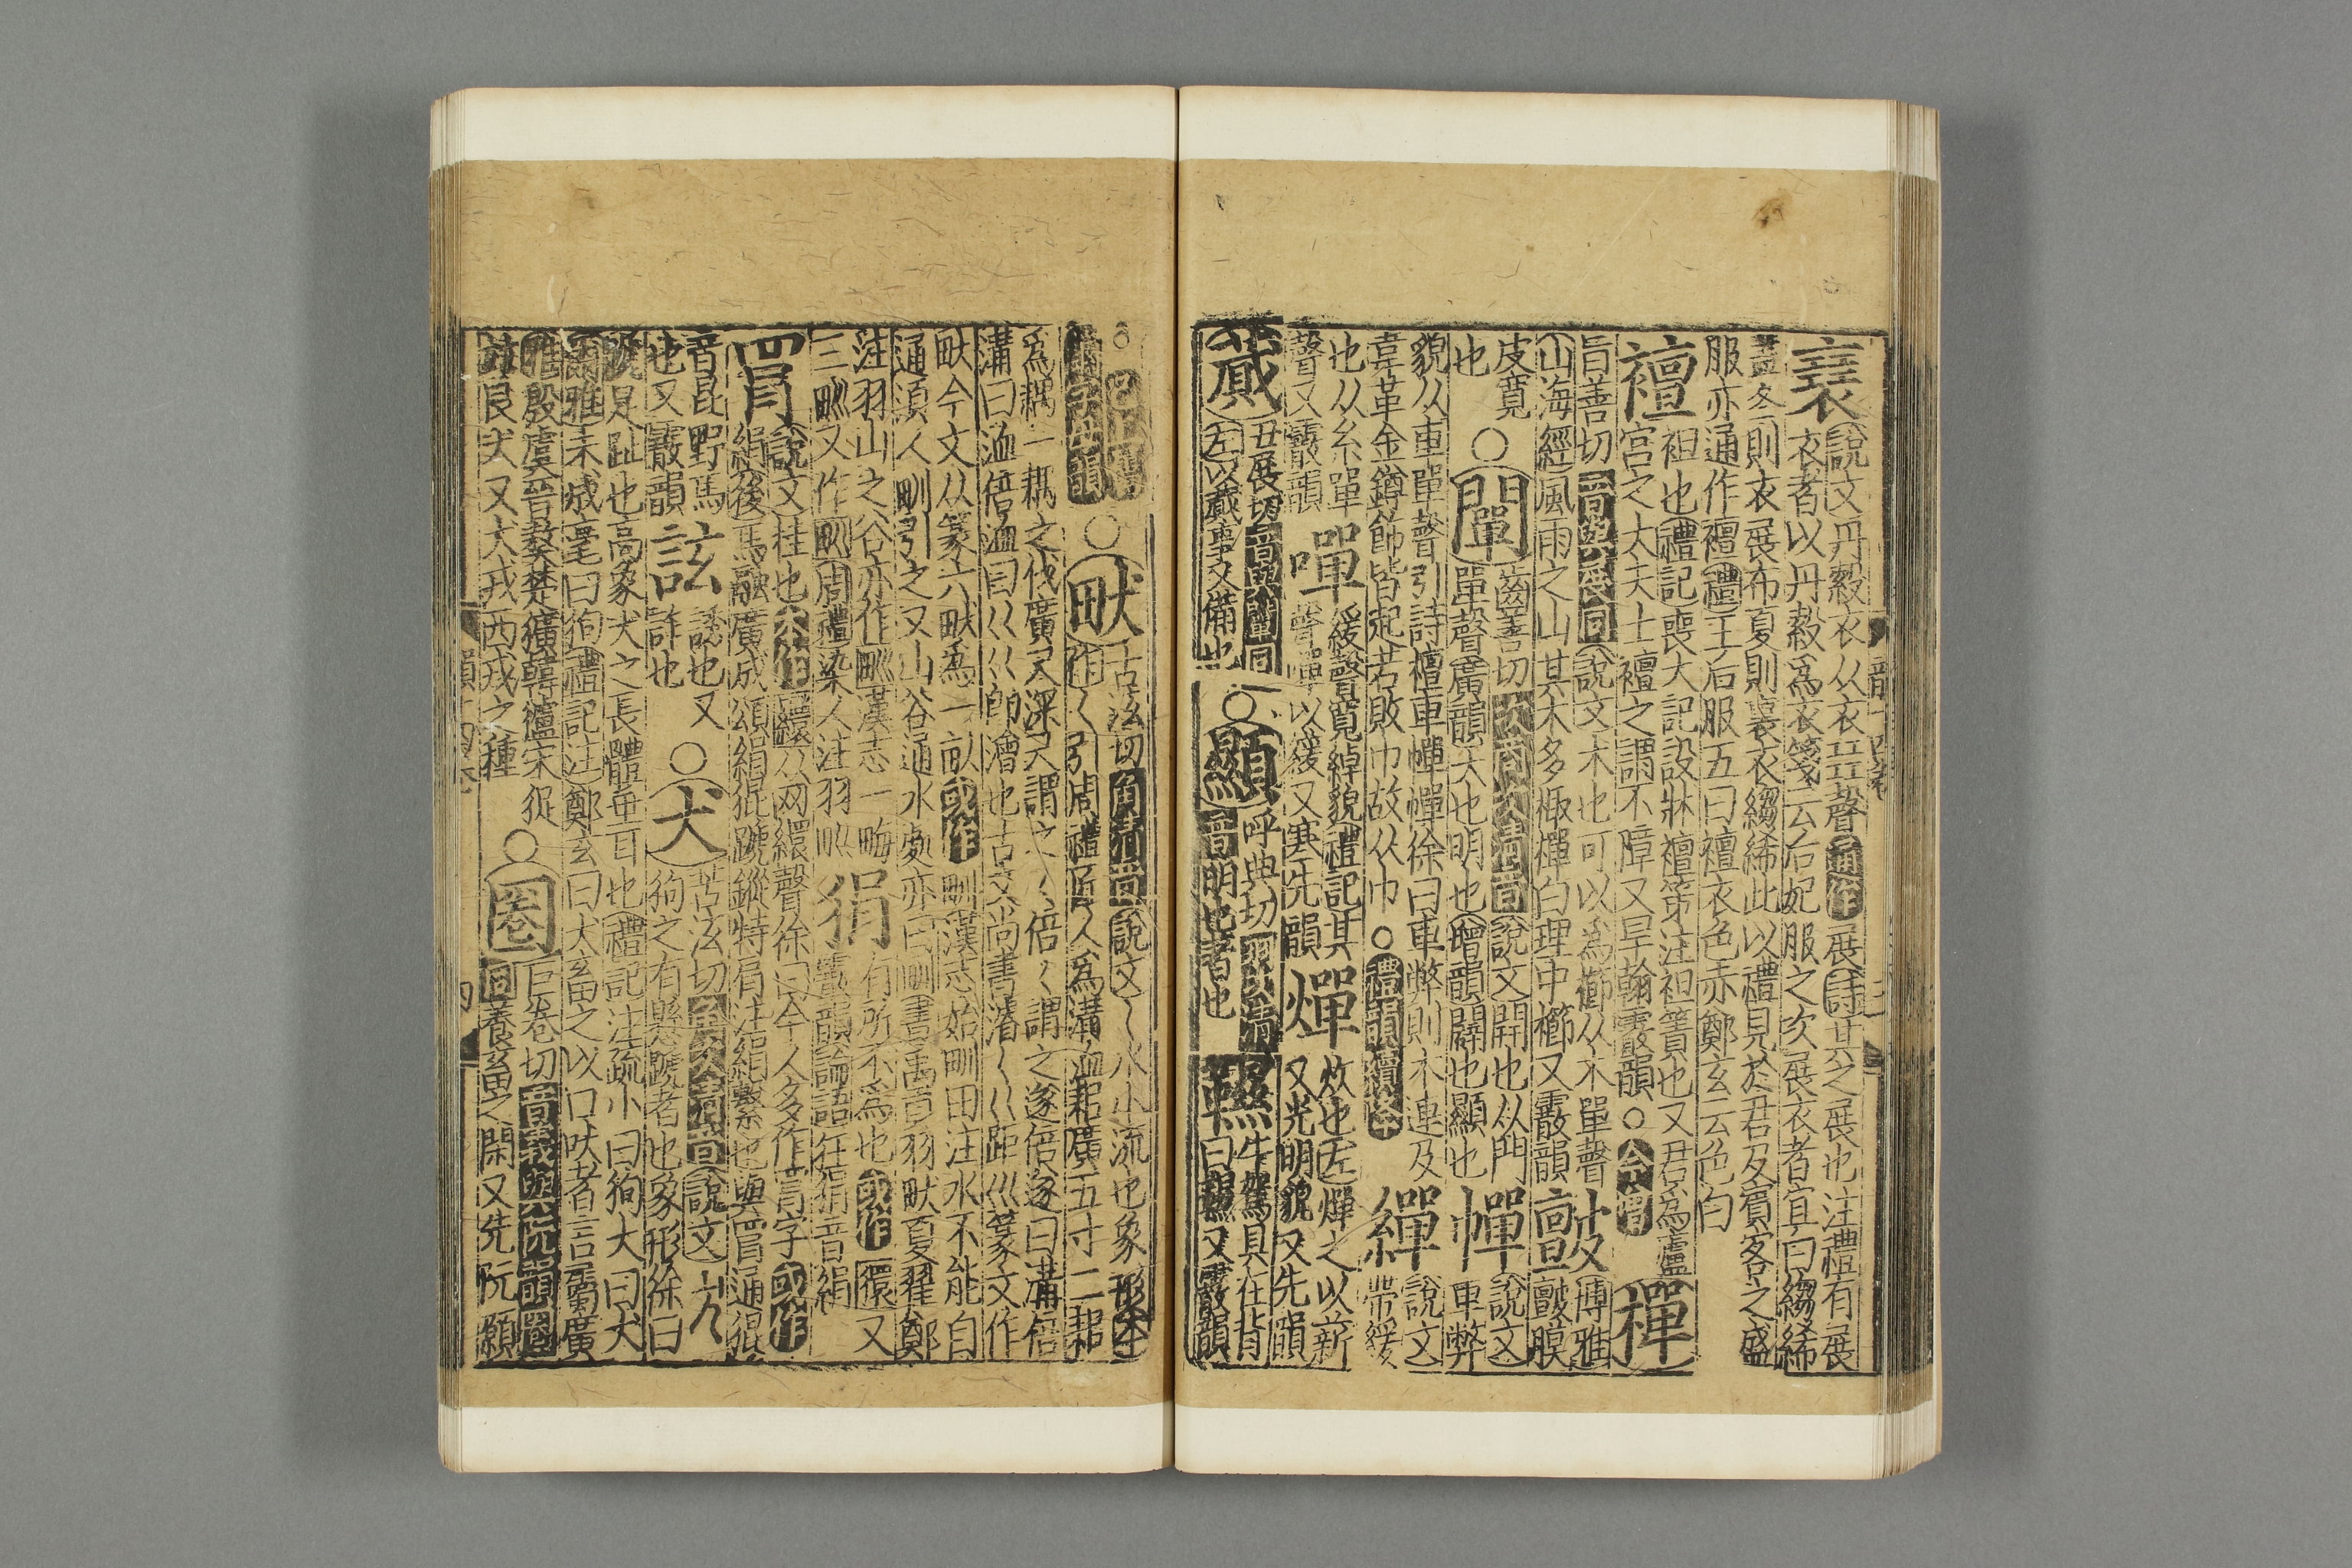 襢說文丹縠衣从衣㠭聲通作展詩其之展也注禮有展
衣者以丹縠爲衣箋云后妃服之次展衣者宜白縐絺
蓋冬則衣展布夏則襄衣縐絺此以禮見於君及賓客之盛
服亦通作襢禮王后服五曰襢衣色赤鄭玄云色白
襢袒也禮記喪大記設牀襢第注袒簀也又君爲廬
宮之大夫士襢之謂不障又旱翰霰韻○今增樿
旨善切音與展同說文木也可以爲櫛从木單聲
山海經風雨之山其木多棷樿白理中櫛又霰韻
皽博雅
皽膜
皮寬
也
○闡齒善切次商次清音說文開也从門
單聲廣韻大也明也增韻闢也顯也
幝說文
車弊
貌从車單聲引詩檀車幝幝徐曰車弊則木連及
韋革金鐏飾皆起若敗巾故从巾○禮韻續降
繟說文
帶緩
也从糸單
聲又霰韻
嘽緩聲寬綽貌禮記其
聲嘽以緩又寒先韻
燀炊也左燀之以薪
又光明貌又先韻
蕆丑展切音與闡同
左以蕆事又備也
○顯呼典切羽次清
音明也著也
韅牛駕具在背
曰韅又霰韻
字母韻
○畎古泫切角清音說文〱水小流也象形本
作〱引周禮匠人爲溝洫耜廣五寸二耜
爲耦一耦之伐廣尺深尺謂之〱倍〱謂之遂倍遂曰溝倍
溝曰洫倍洫曰巜巜卽澮也古文尚書濬〱巜距巛篆文作
畎今文从篆六畎爲一畝或作甽漢志始甽田注水不能自
通須人甽引之又山谷通水處亦曰甽書禹貢羽畎夏翟鄭
注羽山之谷亦作𤰕漢志一畮
三𤰕又作𤰕周禮染人注羽𤰕
狷有所不爲也或作獧又
霰韻論語狂狷音絹
罥說文挂也本作䍻从网繯聲徐曰今人多作罥字或作
絹後馬融廣成頌絹猑蹏鏦特肩注絹繫也與罥通猑
音昆野馬
也又霰韻
詃誘也又
詐也
○犬苦泫切角次清音說文犬
狗之有懸蹏者也象形徐曰
蹏足趾也高象犬之長體垂耳也禮記注疏小曰狗大曰犬
爾雅未成毫曰狗禮記注鄭玄曰犬畜之以口吠者言屬廣
雅殷虞晉獒楚獚韓獹宋㹱
良犬又犬戎西戎之種
○圈巨卷切音義與阮韻圈
同養畜之閑又先阮願